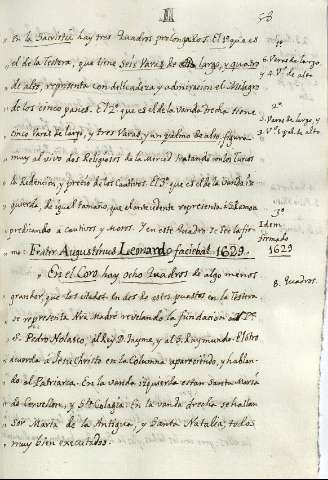 II
58
„ En la Sacristia hay tres Quadros prolongados. El 1º que es
„ el de la Testera, que tiene seis Varas de largo, y quatro
„ de alto, representa con delicadeza y admiracion el Milagro
„ de los cinco panes. El 2º que es el de la vanda drecha tiene
„ cinco Varas de largo, y tres Varas, y un palmo de alto, figura
„ muy al vivo dos Religiosos de la Merced tratando con los Turcos
„ la Redencion, y precio de los Cautivos. El 3º que es el de la vanda iz
„ quierda, de igual tamaño, que el antecedente representa
„ predicando a cautivos y moros. Y en este Quadro se lee la fir
„ ma: Frater Augustinus Leonardo faciebat. 1629.
„ En el Coro hay ocho Quadros de algo menos
„ grandor, que los citados. en dos de estos puestos en la Testera
„ se representa Nra Madre revelando la fundacion al
„ S. Pedro Nolasco, al Rey D. Jayme, y al S. Raymundo. El otro
„ acuerda a Jesu Christo en la Columna apareciendo, y hablan-
„ do al Patriarca. En la vanda izquierda estan Santa Maria
„ de Cervellon, y Sta Colagia. En la vanda drecha se hallan
„ Sor Maria de la Antigua, y Santa Natalia; todos
„ muy bien executados.
1º
6. Varas de largo,
y 4. Vs de alto
2º
5. Varas de largo, y
3. Vs 1 pal. de alto
3º
Idem
firmado
1629
8. Quadros.